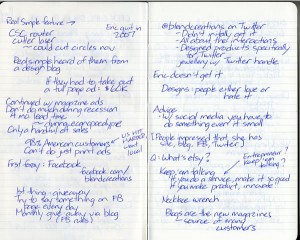 Real Simple feature →
Eric quit in 2007
CSC router
cutter laser
- could cut circles now
Real simple heard of them from
a design blog
If they had to take out
a full page ad:
Continued w/ magazine ads
Don't do much during recession
lead time
Only a handful of sales
98% American customers
Can't do just print ads
First foray: Facebook
facebook.com/
blondcreations
1st thing - giveaway
Try to say something on FB
page every day
Monthly give away via blog
(FB rules)
@blondcreations on Twitter
- Didn't initially get it
- All about the interactions
- Designed products specifically
for Twitter
jewellery w/ Twitter handle
Eric doesn't get it
Designs: people either love or
hate it
Advice
- w/ social media you have to
do something even if small
[People impressed that she has
site, blog, FB, Twitter]
Q: What's etsy?
Keep on talking
If you do a service, make it so good
If you make product, innovate
Necklace wrench
Blogs are the new magazines
- source of many
customers